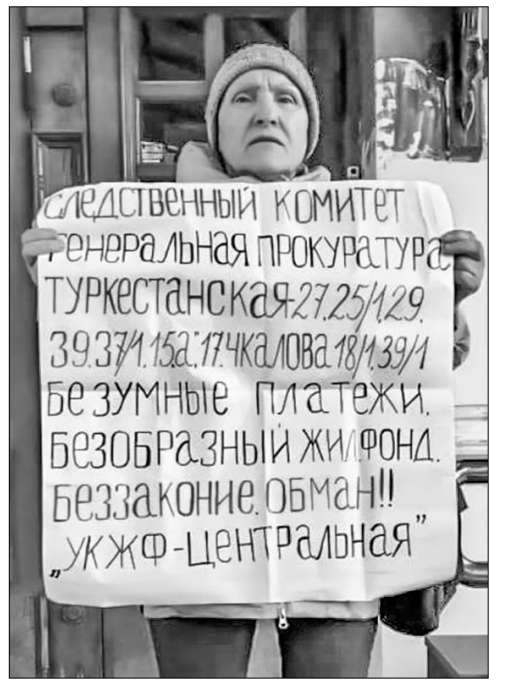 СЛЕДСТВЕННЫЙ КОМИТЕТ
ГЕНЕРАЛЬНАЯ ПРОКУРАТУРА
ТУРКЕСТАНСКАЯ-27.25/1.29.
39.37/1.15а.17.ЧКАЛОВА 18/1.39/1
БЕЗУМНЫЕ ПЛАТЕЖИ.
БЕЗОБРАЗНЫЙ ЖИЛФОНД.
БЕЗЗАКОНИЕ. ОБМАН!!
„УКЖФ-ЦЕНТРАЛЬНАЯ”